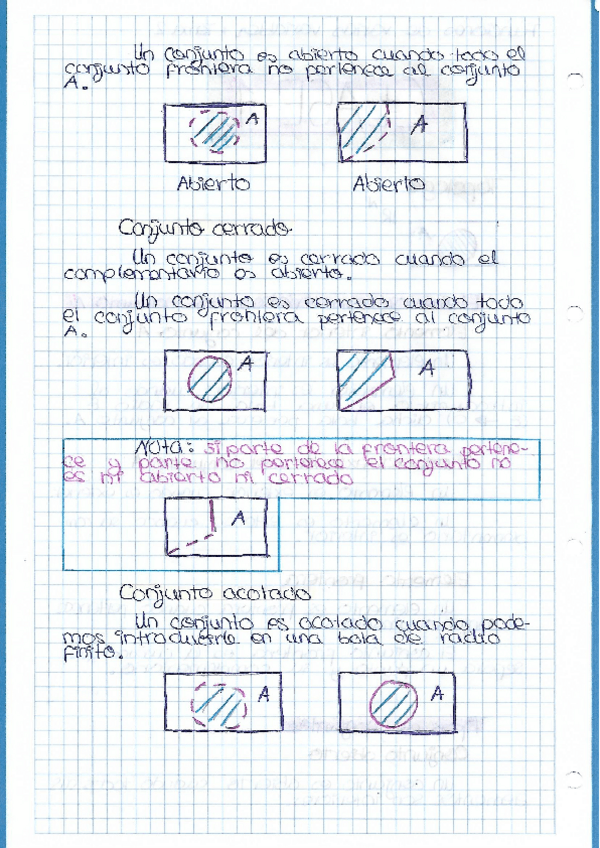 Un conjunto es abierto cuando todo el
conjunto frontera no pertenece al conjunto
A.
A
A
Abierto
Abierto
Conjunto cerrado
Un conjunto es cerrado cuando el
complementario es abierto.
Un conjunto es cerrado cuando todo
el conjunto frontera pertenece al conjunto
A.
A
A
Nota: si parte de la frontera pertene-
ce y parte no pertenece el conjunto no
es ni abierto ni cerrado
A
Conjunto acotado
Un conjunto es acotado cuando pode-
mos introducirlo en una bola de radio
finito.
A
A